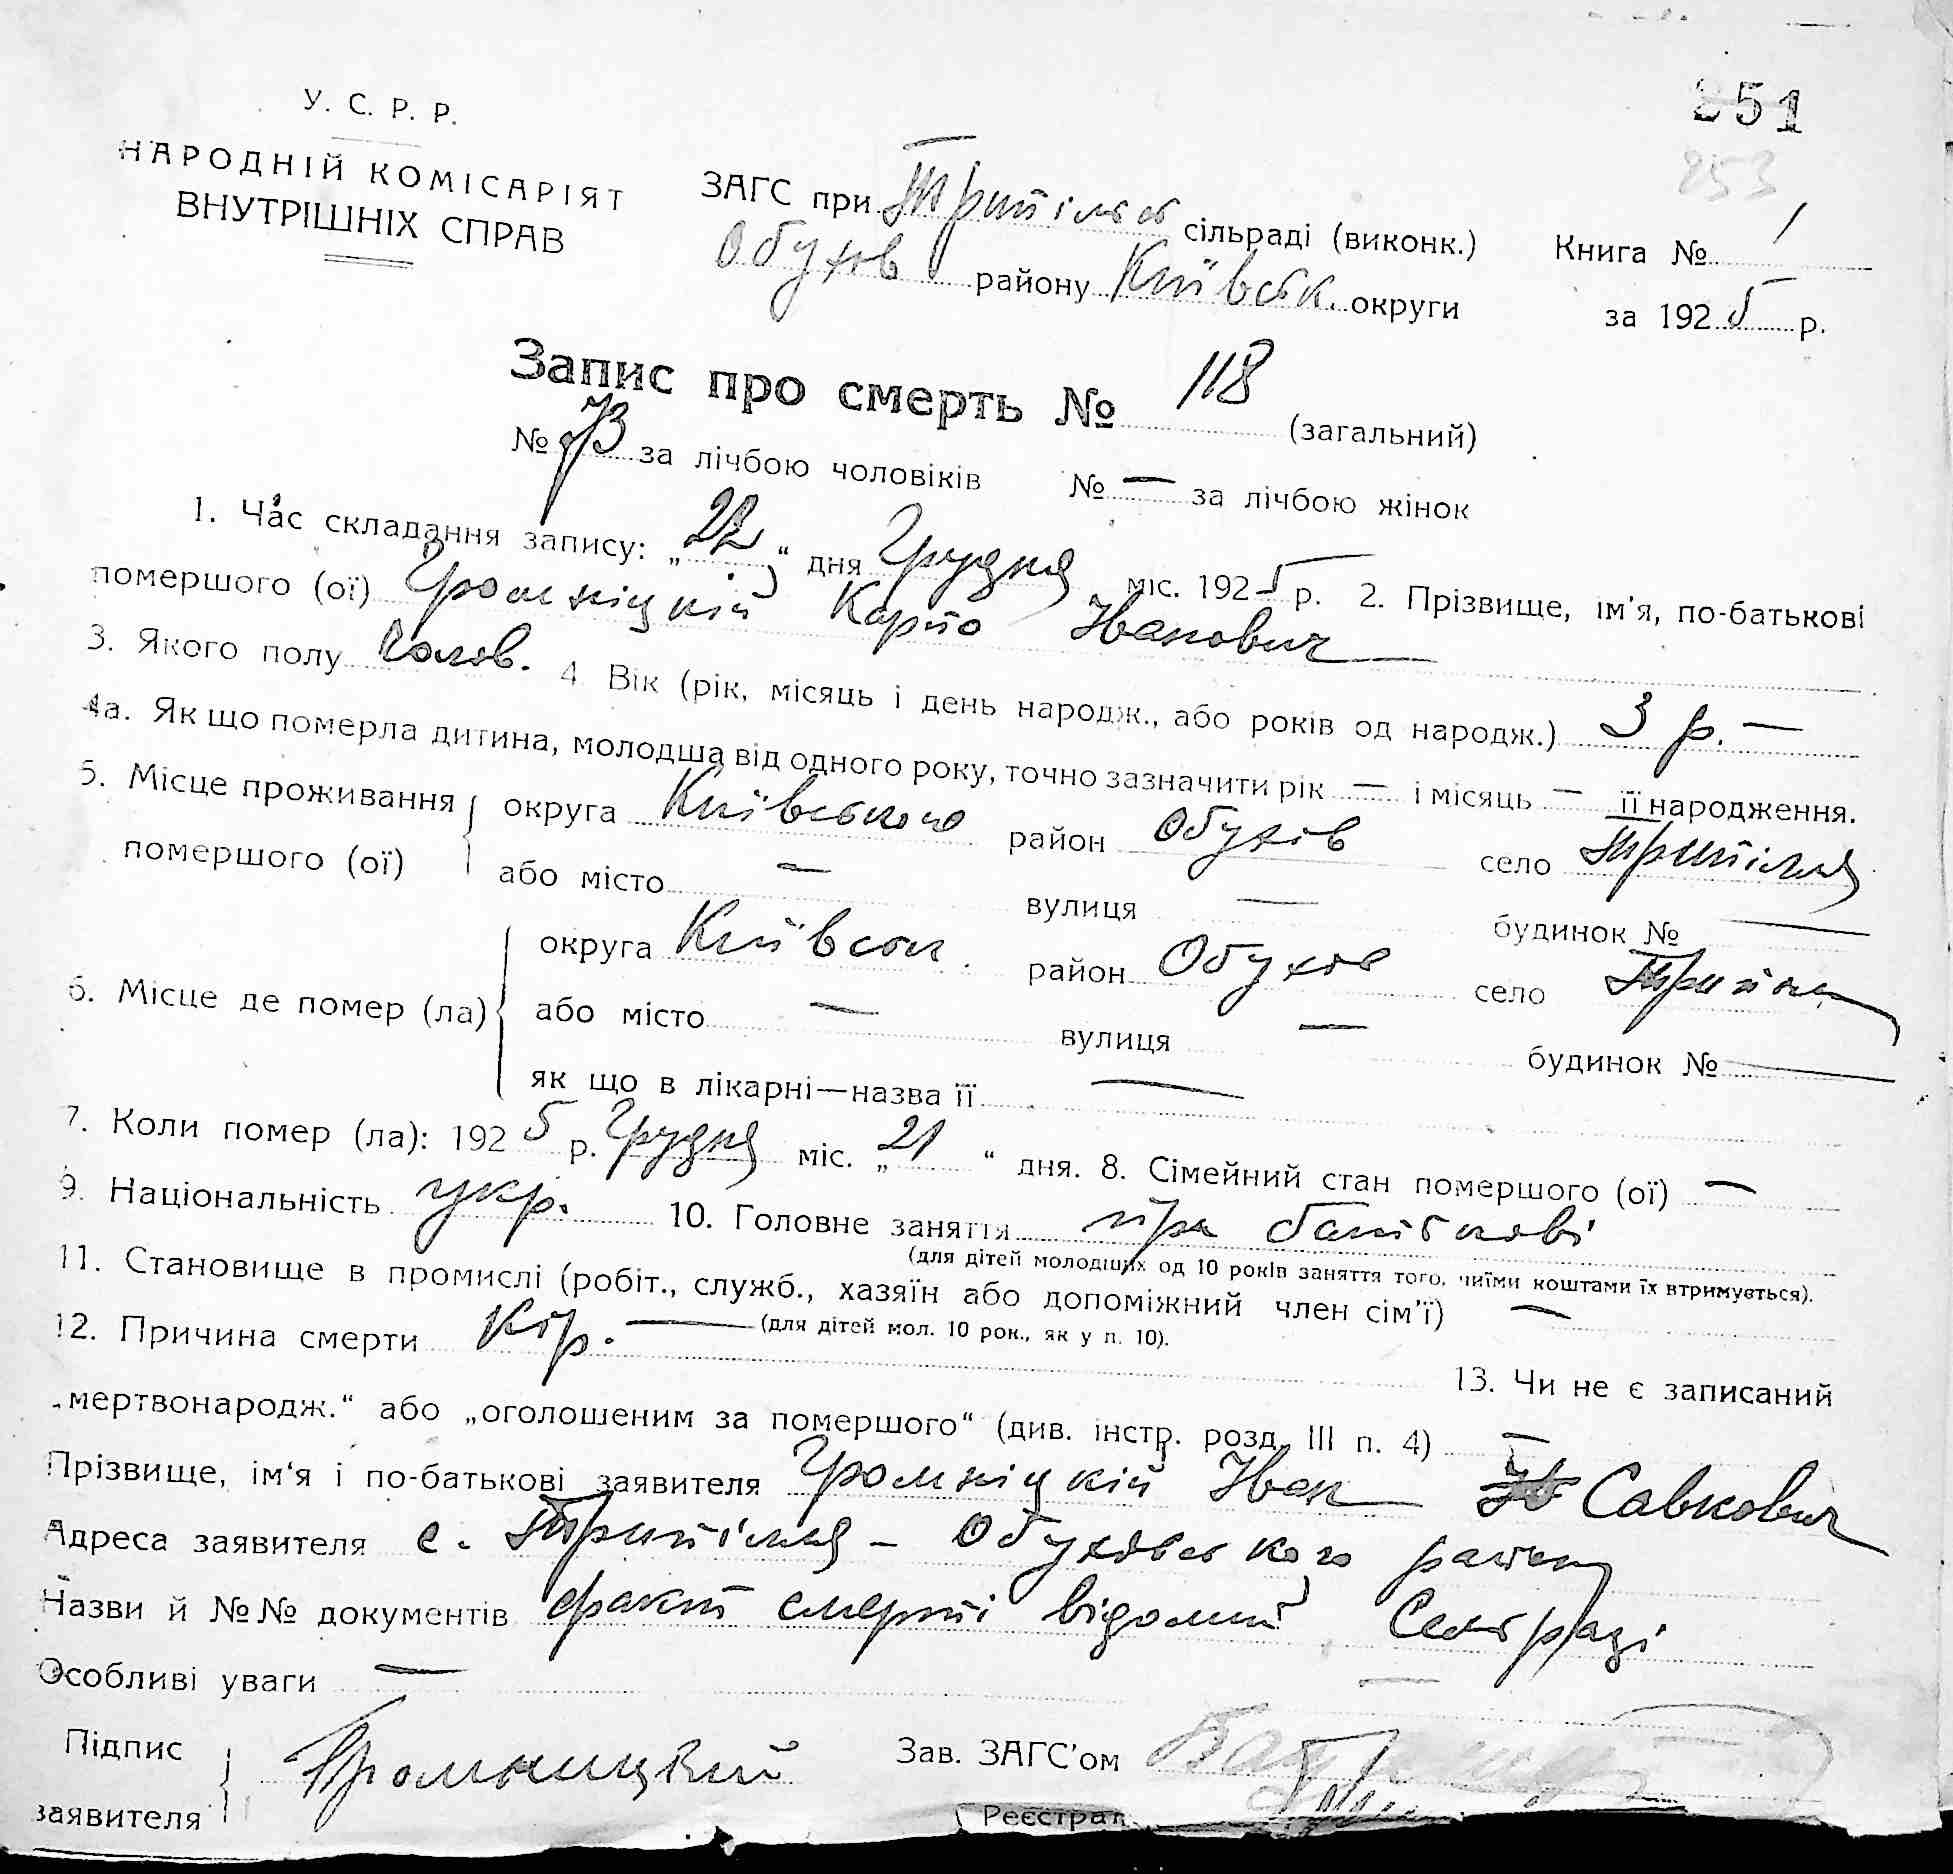 У. С. Р. Р.
НАРОДНІЙ КОМІСАРІЯТ
ВНУТРІШНІХ СПРАВ
251
253
ЗАГС при Трипільск сільраді (виконк.) Книга № 1
Обухов району Київськ. округи за 1925 р.
Запис про смерть № 118 (загальний)
№ 73 за лічбою чоловіків № — за лічбою жінок
1. Час складання запису: „22“ дня Грудня міс. 1925 р. 2. Прізвище, ім'я, по-батькові
помершого (ої) Громніцкій Карпо Іванович —
3. Якого полу Чолов. 4 Вік (рік, місяць і день народж., або років од народж.) 3 р. —
4а. Як що померла дитина, молодша від одного року, точно зазначити рік — і місяць — її народження.
5. Місце проживання округа Київського район Обухів село Трипілля
помершого (ої) або місто — вулиця — будинок № —
округа Київськ. район Обухов село
6. Місце де помер (ла) або місто — вулиця — будинок № —
як що в лікарні—назва її —
7. Коли помер (ла): 1925 р. Грудня міс. „21“ дня. 8. Сімейний стан помершого (ої) —
9. Національність укр. 10. Головне заняття при батькові
(для дітей молодших од 10 років заняття того, чиїми коштами їх втримується).
11. Становище в промислі (робіт., служб., хазяїн або допоміжний член сім'ї) —
(для дітей мол. 10 рок., як у п. 10).
12. Причина смерти Кір. — 13. Чи не є записаний
„мертвонародж.“ або „оголошеним за помершого“ (див. інстр. розд. III п. 4) —
Прізвище, ім'я і по-батькові заявителя Громніцкій Іван Савкович
Адреса заявителя с. Трипілля – Обухівського району
Назви й №№ документів факт смерті відомий Сельраді
Особливі уваги —
Підпис Громницкий Зав. ЗАГС'ом
заявителя
Реєстрат.